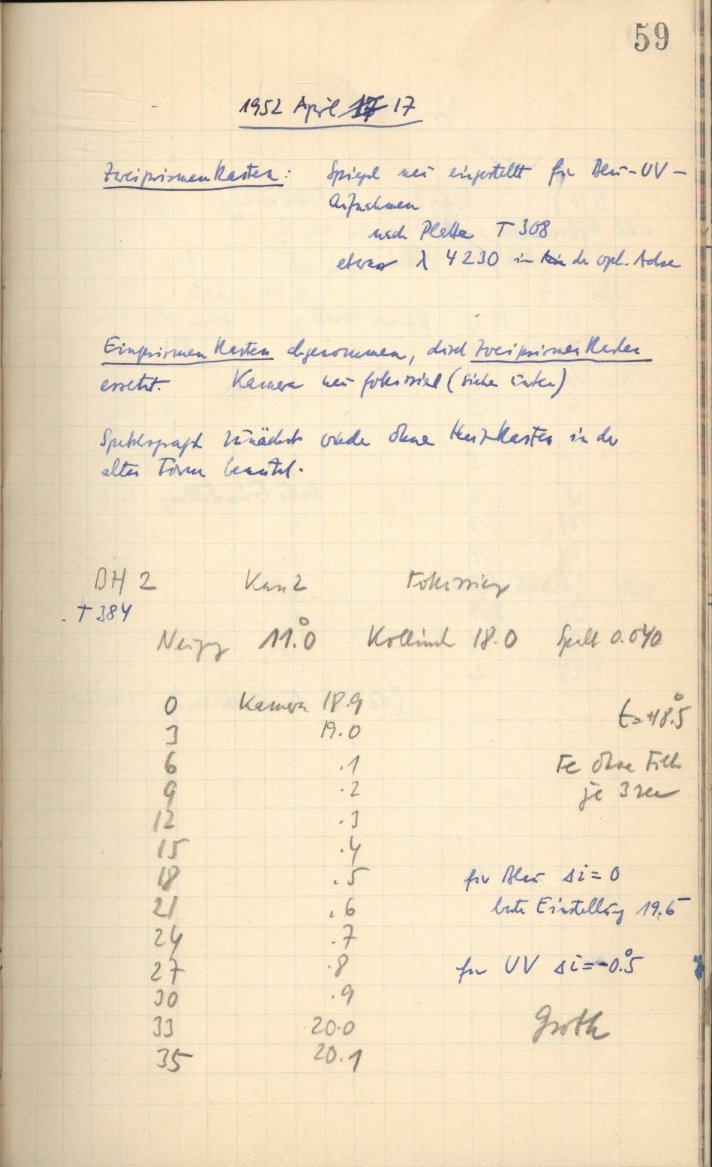 59
1952 April 17 17
Zweiprismenkasten: Spiegel neu eingestellt für Blau-UV-
Aufnahmen
nach Platte T 308
etwa λ 4230 in der opt. Achse
Einprismenkasten abgenommen, durch Zweiprismenkasten
ersetzt. Kamera neu fokussiert (siehe unten)
Spektrograph zunächst wieder ohne Heizkasten in der
alten Form benutzt.
BH 2 Kam 2 Fokussierg
T 384
Neigg 11.°0 Kollimator 18.0 Spalt 0.040
0 Kamera 18.9 t=+18.°5
3 19.0
6 .1 Fe ohne Filter
9 .2 je 3 sec
12 .3
15 .4
18 .5 für Blau Δi=0
21 .6 beste Einstellung 19.6
24 .7
27 .8 für UV Δi=-0.°5
30 .9
33 20.0 Groth
35 20.1